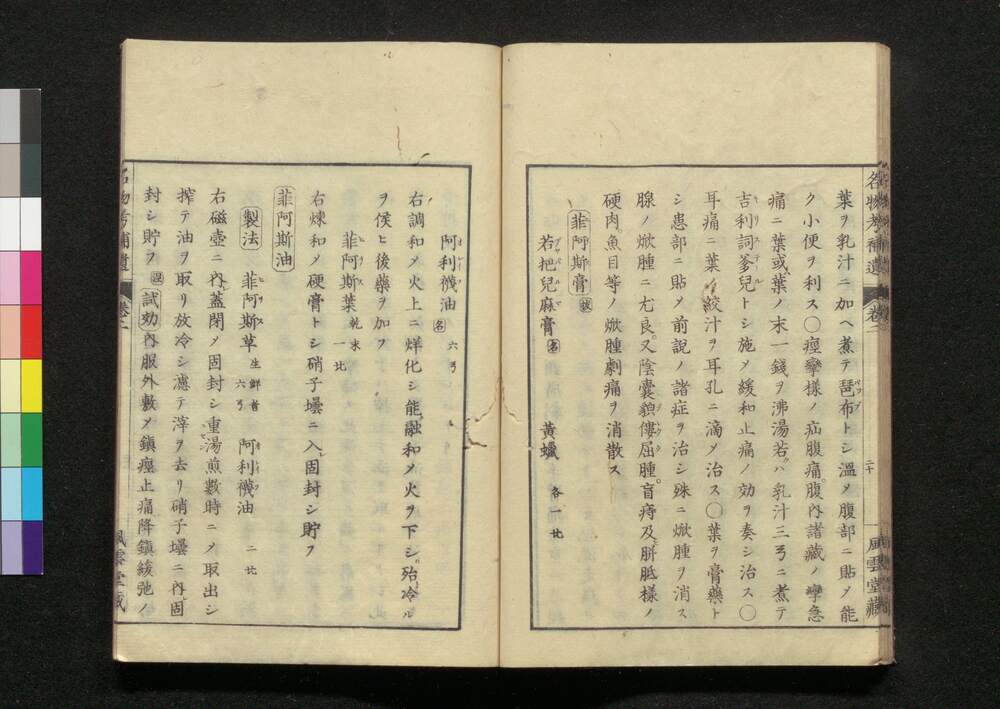 名物考補遺 卷二 二十 風雲堂藏
葉ヲ乳汁ニ加ヘ煮テ琶布トシ溫メ腹部ニ貼メ能
ク小便ヲ利ス〇痙攣樣ノ疝腹痛腹內諸藏ノ攣急
痛ニ葉或葉ノ末一錢ヲ沸湯若ハ乳汁三弓ニ煮テ
吉利詞爹兒トシ施メ緩和止痛ノ効ヲ奏シ治ス〇
耳痛ニ葉ノ絞汁ヲ耳孔ニ滴メ治ス〇葉ヲ膏藥ト
シ患部ニ貼メ前說ノ諸症ヲ治シ殊ニ焮腫ヲ消ス
腺ノ焮腫ニ尤良又陰囊貌僂屈腫盲痔及胼胝樣ノ
硬肉魚目等ノ焮腫劇痛ヲ消散ス
菲阿斯膏
若把兒麻膏 名 黃蠟 各一
阿利襪油 名 六弓
右調和メ火上ニ烊化シ能融和メ火ヲ下シ殆冷ル
ヲ候ヒ後藥ヲ加フ
菲阿斯葉 乾末 一
右煉和メ硬膏トシ硝子壜ニ入固封シ貯フ
菲阿斯油
製法 菲阿斯草 生鮮者 六弓 阿利襪油 二
右磁壺ニ內蓋閉メ固封シ重湯煎數時ニメ取出シ
搾テ油ヲ取リ放冷シ濾テ滓ヲ去リ硝子壜ニ內固
封シ貯フ 試効 內服外敷メ鎭痙止痛降鎭緩弛ノ
名物考補遺 卷二 風雲堂藏